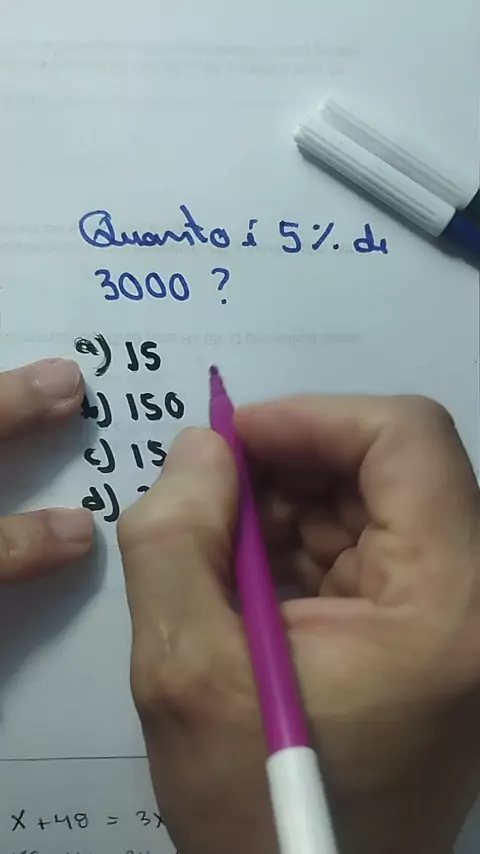 Quanto é 5% de
3000 ?
a) 15
b) 150
c) 15
d)
x + 48 = 3x